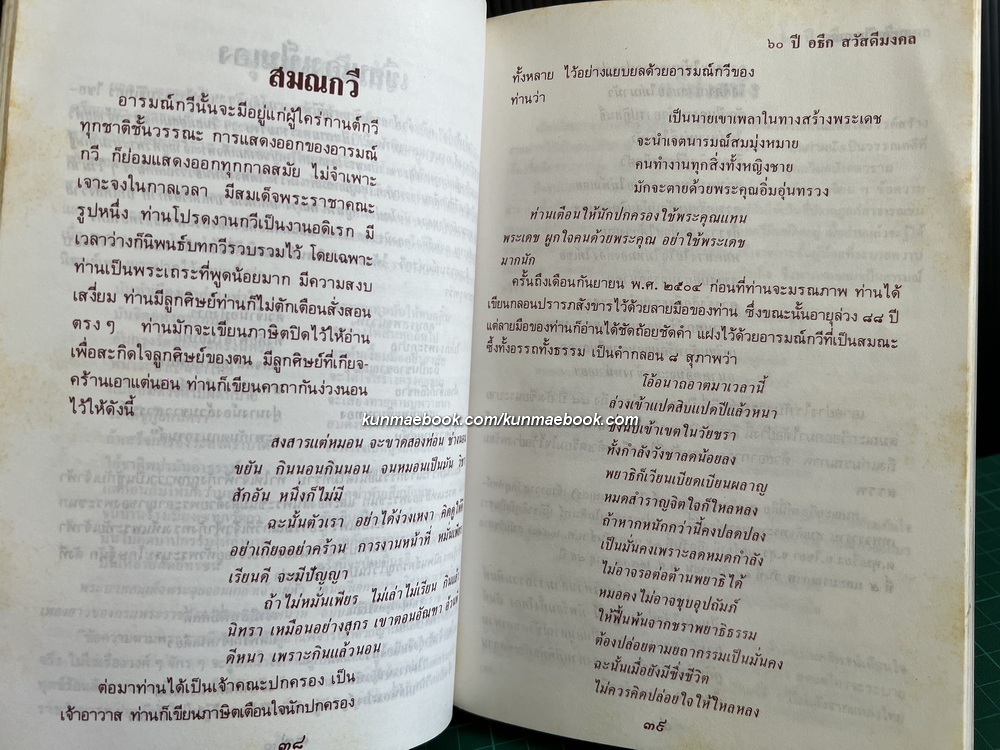 สมณกวี
อารมณ์กวีนั้นจะมีอยู่แก่ผู้ใคร่กานต์กวี
ทุกชาติชั้นวรรณะ การแสดงออกของอารมณ์
กวี ก็ย่อมแสดงออกทุกกาลสมัย ไม่จำเพาะ
เจาะจงในกาลเวลา มีสมเด็จพระราชาคณะ
รูปหนึ่ง ท่านโปรดงานกวีเป็นงานอดิเรก มี
เวลาว่างก็นิพนธ์บทกวีรวบรวมไว้ โดยเฉพาะ
ท่านเป็นพระเถระที่พูดน้อยมาก มีความสงบ
เสงี่ยม ท่านมีลูกศิษย์ท่านก็ไม่ตักเตือนสั่งสอน
ตรงๆ ท่านมักจะเขียนภาษิตปิดไว้ให้อ่าน
เพื่อสะกิดใจลูกศิษย์ของตน มีลูกศิษย์ที่เกียจ-
คร้านเอาแต่นอน ท่านก็เขียนคาถากันง่วงนอน
ไว้ให้ดังนี้
สงสารแต่หมอน จะขาดสองท่อน ช่างนอน
ขยัน กินนอนกินนอน จนหมอนเป็นมัน วิชา
สักอัน หนึ่งก็ไม่มี
ฉะนั้นตัวเรา อย่าได้ง่วงเหงา คิดดูให้ดี
อย่าเกียจอย่าคร้าน การงานหน้าที่ หมั่นเพียร
เรียนดี จะมีปัญญา
ถ้าไม่หมั่นเพียร ไม่เล่าไม่เรียน กินแล้ว
นิทรา เหมือนอย่างสุกร เขาตอนอัณฑา อ้วน
ดีหนา เพราะกินแล้วนอน
ต่อมาท่านได้เป็นเจ้าคณะปกครอง เป็น
เจ้าอาวาส ท่านก็เขียนภาษิตเตือนใจนักปกครอง
๓๘
๖๐ ปี อธึก สวัสดีมงคล
ทั้งหลาย ไว้อย่างแยบยลด้วยอารมณ์กวีของ
ท่านว่า
เป็นนายเขาเพลาในทางสร้างพระเดช
จะนำเจตนารมณ์สมมุ่งหมาย
คนทำงานทุกสิ่งทั้งหญิงชาย
มักจะตายด้วยพระคุณอิ่มอุ่นทรวง
ท่านเตือนให้นักปกครองใช้พระคุณแทน
พระเดช ผูกใจคนด้วยพระคุณ อย่าใช้พระเดช
มากนัก
ครั้นถึงเดือนกันยายน พ.ศ. ๒๕๐๔ ก่อนที่ท่านจะมรณภาพ ท่านได้
เขียนกลอนปรารภสังขารไว้ด้วยลายมือของท่าน ซึ่งขณะนั้นอายุล่วง ๘๘ ปี
แต่ลายมือของท่านก็อ่านได้ชัดถ้อยชัดคำ แฝงไว้ด้วยอารมณ์กวีที่เป็นสมณะ
ซึ้งทั้งอรรถทั้งธรรม เป็นคำกลอน ๘ สุภาพว่า
โอ้อนาถอาตมาเวลานี้
ล่วงเข้าแปดสิบแปดปีแล้วหนา
kunmaebook.com/kunmaebook.com
ซึ่งนับเข้าเขตในวัยชรา
ทั้งกำลังวังชาลดน้อยลง
พยาธิก็เวียนเบียดเบียนผลาญ
หมดสำราญจิตใจก็ใหลหลง
ถ้าหากหนักกว่านี้คงปลดปลง
เป็นมั่นคงเพราะลดหมดกำลัง
ไม่อาจรอต่อต้านพยาธิได้
หมอคงไม่อาจชุบอุปถัมภ์
ให้ฟื้นพ้นจากชราพยาธิธรรม
ต้องปล่อยตามยถากรรมเป็นมั่นคง
ฉะนั้นเมื่อยังมีซึ่งชีวิต
ไม่ควรคิดปล่อยใจให้ใหลหลง
๓๙